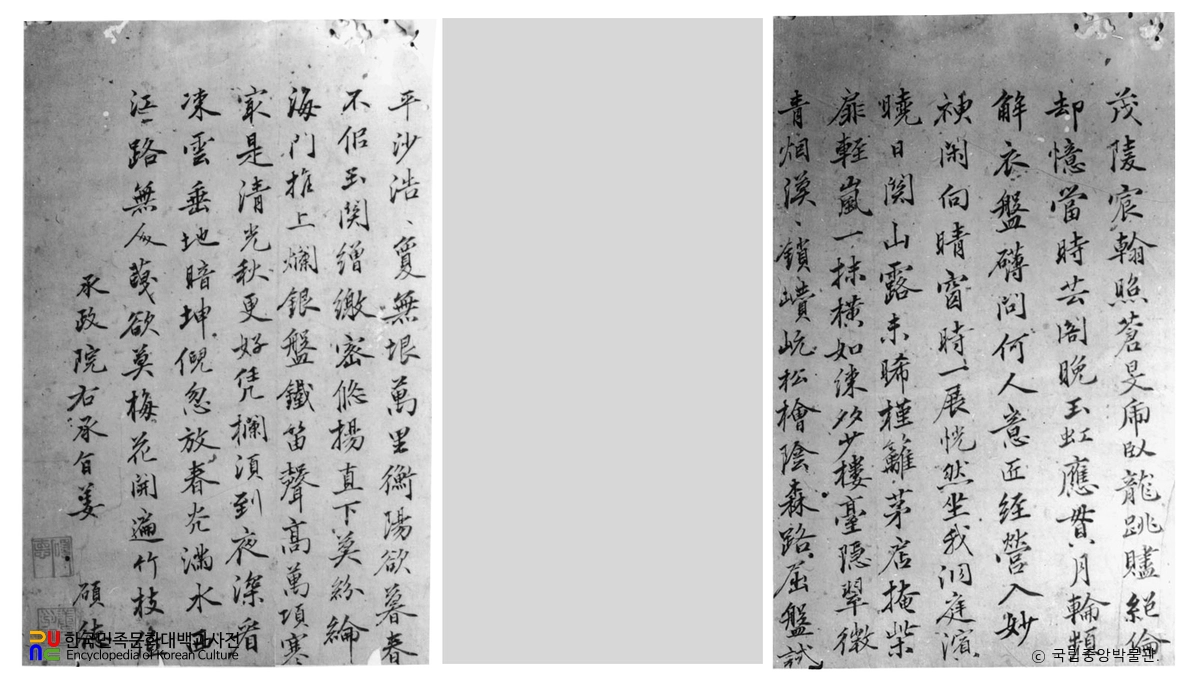 茂陵宸翰照蒼旻虎臥龍跳絕倫
却憶當時芸閣晩玉虹應貫月輪頻
解衣盤礴問何人意匠經營入妙
神閑向晴窗時一展恍然坐我洞庭濱
曉日関山露未晞槿籬茅店掩柴
扉輕嵐一抹橫如練多少樓臺隱翠微
青烟漠、鎖岏松檜陰森路屈盤試
平沙浩、夐無垠萬里衡陽欲暮春
不但玉関繒繳密悠揚直下莫紛綸
海门推上爛銀盤鐵笛聲高萬頃寒
最是清光秋更好凭欄須到夜深看
凍雲垂地暗坤倪忽放春光滿水西
江路無人欲莫梅花開遍竹枝
承政院右承旨姜 碩德
한국민족문화대백과사전
Encyclopedia of Korean Culture
© 국립중앙박물관.